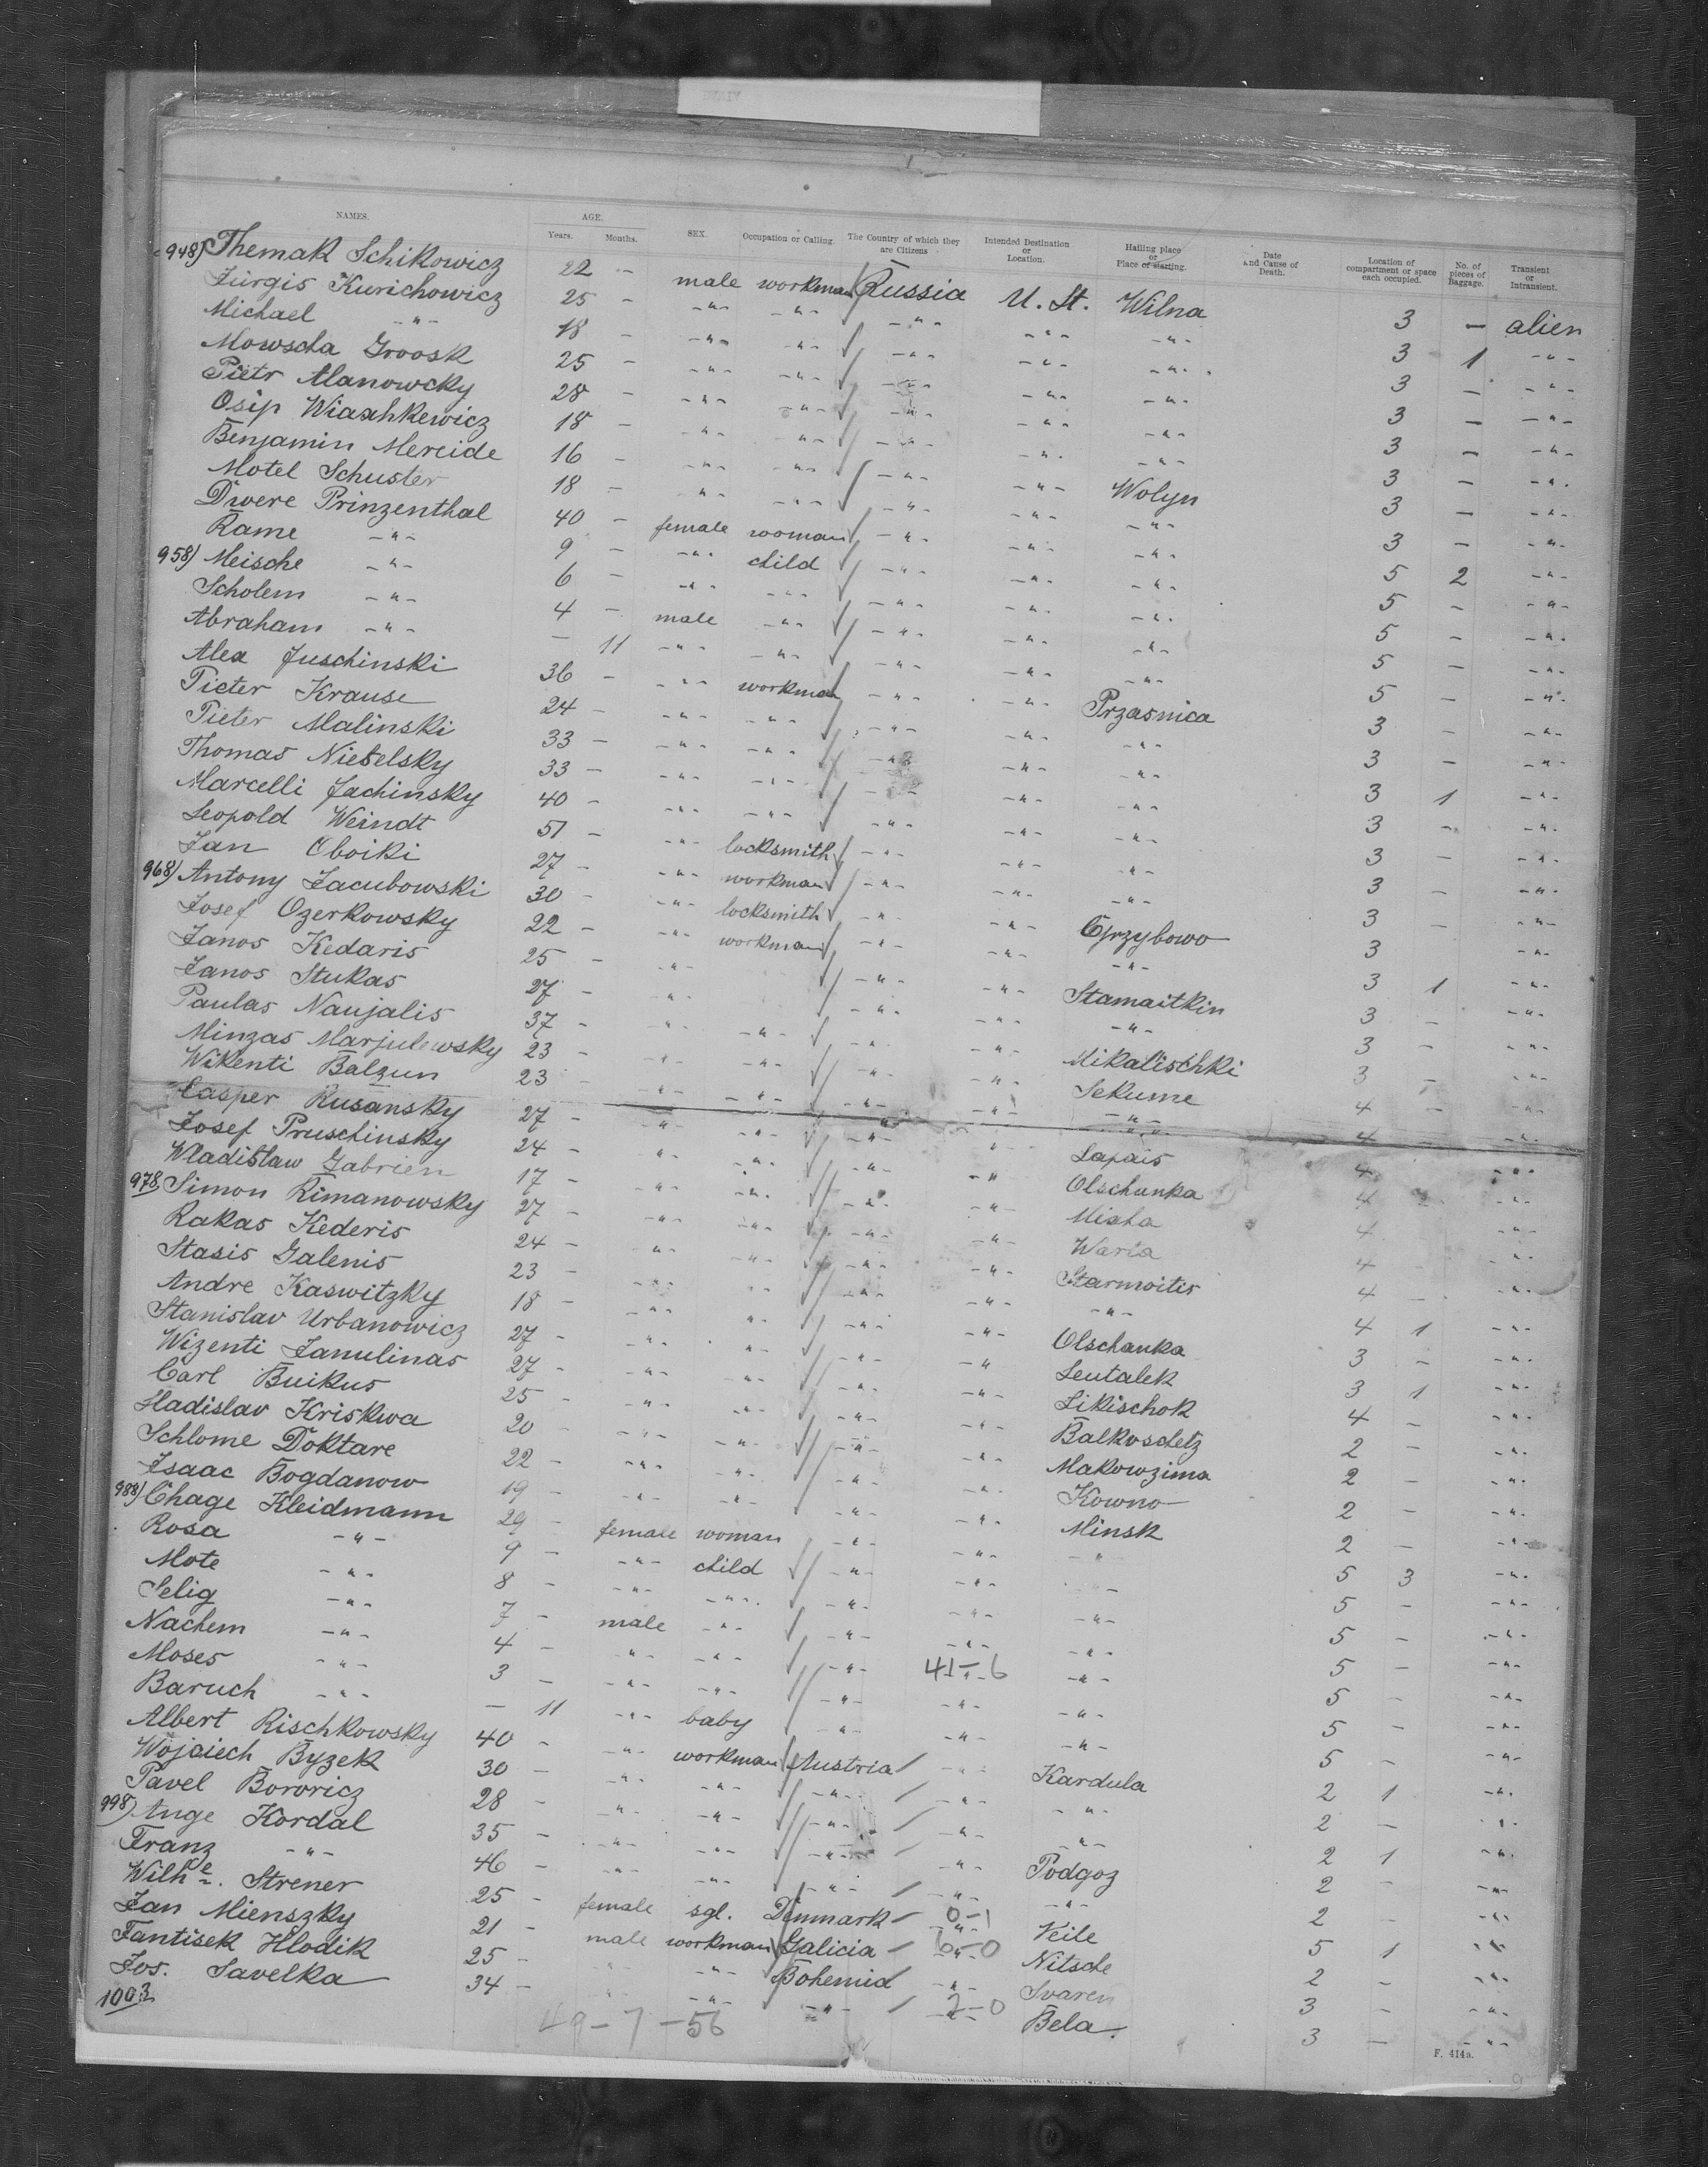 NAMES. AGE. Years. Months. SEX. Occupation or Calling. The Country of which they are Citizens Intended Destination or Location. Hailing place or Place of starting. Date and Cause of Death. Location of compartment or space each occupied. No. of pieces of Baggage. Transient or Intransient.
948) Themak Schikowicz 22 - male workman Russia U. St. Wilna 3 - alien
Jurgis Kurichowicz 25 - -"- -"- -"- -"- -"- 3 1 -"-
Michael -"- 18 - -"- -"- -"- -"- -"- 3 - -"-
Mowscha Groosk 25 - -"- -"- -"- -"- -"- 3 - -"-
Pietr Alanowcky 28 - -"- -"- -"- -"- -"- 3 - -"-
Osip Wiashkewicz 18 - -"- -"- -"- -"- -"- 3 - -"-
Benjamin Mereide 16 - -"- -"- -"- -"- Wolyn 3 - -"-
Motel Schuster 18 - -"- -"- -"- -"- -"- 3 - -"-
Dwere Prinzenthal 40 - female woman -"- -"- -"- 5 2 -"-
Rame -"- 9 - -"- child -"- -"- -"- 5 - -"-
958) Meische -"- 6 - -"- -"- -"- -"- -"- 5 - -"-
Scholem -"- 4 - male -"- -"- -"- -"- 5 - -"-
Abraham -"- - 11 -"- -"- -"- -"- -"- 5 - -"-
Alex Juschinski 36 - -"- workman -"- -"- Przasnica 3 - -"-
Pieter Krause 24 - -"- -"- -"- -"- -"- 3 - -"-
Pieter Malinski 33 - -"- -"- -"- -"- -"- 3 1 -"-
Thomas Nietelsky 33 - -"- -"- -"- -"- -"- 3 - -"-
Marcelli Jachinsky 40 - -"- -"- -"- -"- -"- 3 - -"-
Leopold Weindt 51 - -"- locksmith -"- -"- -"- 3 - -"-
Jan Oboiki 27 - -"- workman -"- -"- -"- 3 - -"-
968) Antony Jacubowski 30 - -"- locksmith -"- -"- Grzybowo 3 -"-
Josef Ozerkowsky 22 - -"- workman -"- -"- -"- 3 1 -"-
Janos Kedaris 25 - -"- -"- -"- Stamaitkin 3 - -"-
Janos Stukas 27 - -"- -"- -"- -"- 3 - -"-
Paulas Naujalis 37 - -"- -"- -"- -"- Mikalischki 3 - -"-
Minzas Marjulewsky 23 - -"- -"- -"- -"- Sekume 4 - -"-
Wikenti Balzun 23 - -"- -"- -"- -"- -"- 4 - -"-
Casper Rusansky 27 - -"- -"- -"- -"- Lapais 4 -"-
Josef Pruschinsky 24 - -"- -"- -"- -"- Olschanka 4 - -"-
Wladislaw Gabrien 17 - -"- -"- -"- -"- Miaha 4 -"-
978 Simon Rimanowsky 27 - -"- -"- -"- -"- Waria 4 -"-
Rakas Kederis 24 - -"- -"- -"- -"- Starmoitis 4 - -"-
Stasis Galenis 23 - -"- -"- -"- -"- -"- 4 1 -"-
Andre Kaswitzky 18 - -"- -"- -"- -"- Olschanka 3 - -"-
Stanislav Urbanowicz 27 - -"- -"- -"- -"- Leutalek 3 1 -"-
Wizenti Janulinas 27 - -"- -"- -"- -"- Likischok 4 - -"-
Carl Buikus 25 - -"- -"- -"- -"- Balkoschetz 2 - -"-
Hadislav Kriskwa 20 - -"- -"- -"- -"- Makowzima 2 - -"-
Schlome Doktare 22 - -"- -"- -"- -"- Kowno 2 - -"-
Isaac Bogdanow 19 - -"- -"- -"- -"- Minsk 2 - -"-
988) Chage Kleidmann 29 - female woman -"- -"- -"- 5 3 -"-
Rosa -"- 9 - -"- child -"- -"- - 5 - -"-
Mote -"- 8 - -"- -"- -"- -"- -"- 5 - -"-
Selig -"- 7 - male -"- -"- -"- -"- 5 - -"-
Nachem -"- 4 - -"- -"- -"- 41-6 -"- 5 - -"-
Moses -"- 3 - -"- -"- -"- -"- -"- 5 - -"-
Baruch -"- - 11 -"- baby -"- -"- -"- 5 - -"-
Albert Rischkowsky 40 - -"- workman Austria -"- Kardula 2 1 -"-
Wojciech Byzek 30 - -"- -"- -"- -"- -"- 2 - -"-
Pavel Bororicz 28 - -"- -"- -"- -"- -"- 2 1 -"-
998) Ange Kordal 35 - -"- -"- -"- -"- Podgoz 2 - -"-
Franz -"- 46 - -"- -"- -"- -"- -"- 2 - -"-
Wilhe. Strener 25 - female sgl. Denmark 0-1 Veile 5 1 -"-
Jan Mienszky 21 - male workman Galicia 6-0 Nitsche 2 - -"-
Fantisek Hlodik 25 - -"- -"- Bohemia -"- Svaren 3 - -"-
Jos. Savelka 34 - -"- -"- -"- 2-0 Bela. 3 - -"-
1003
49-7-56
F. 414a.
9